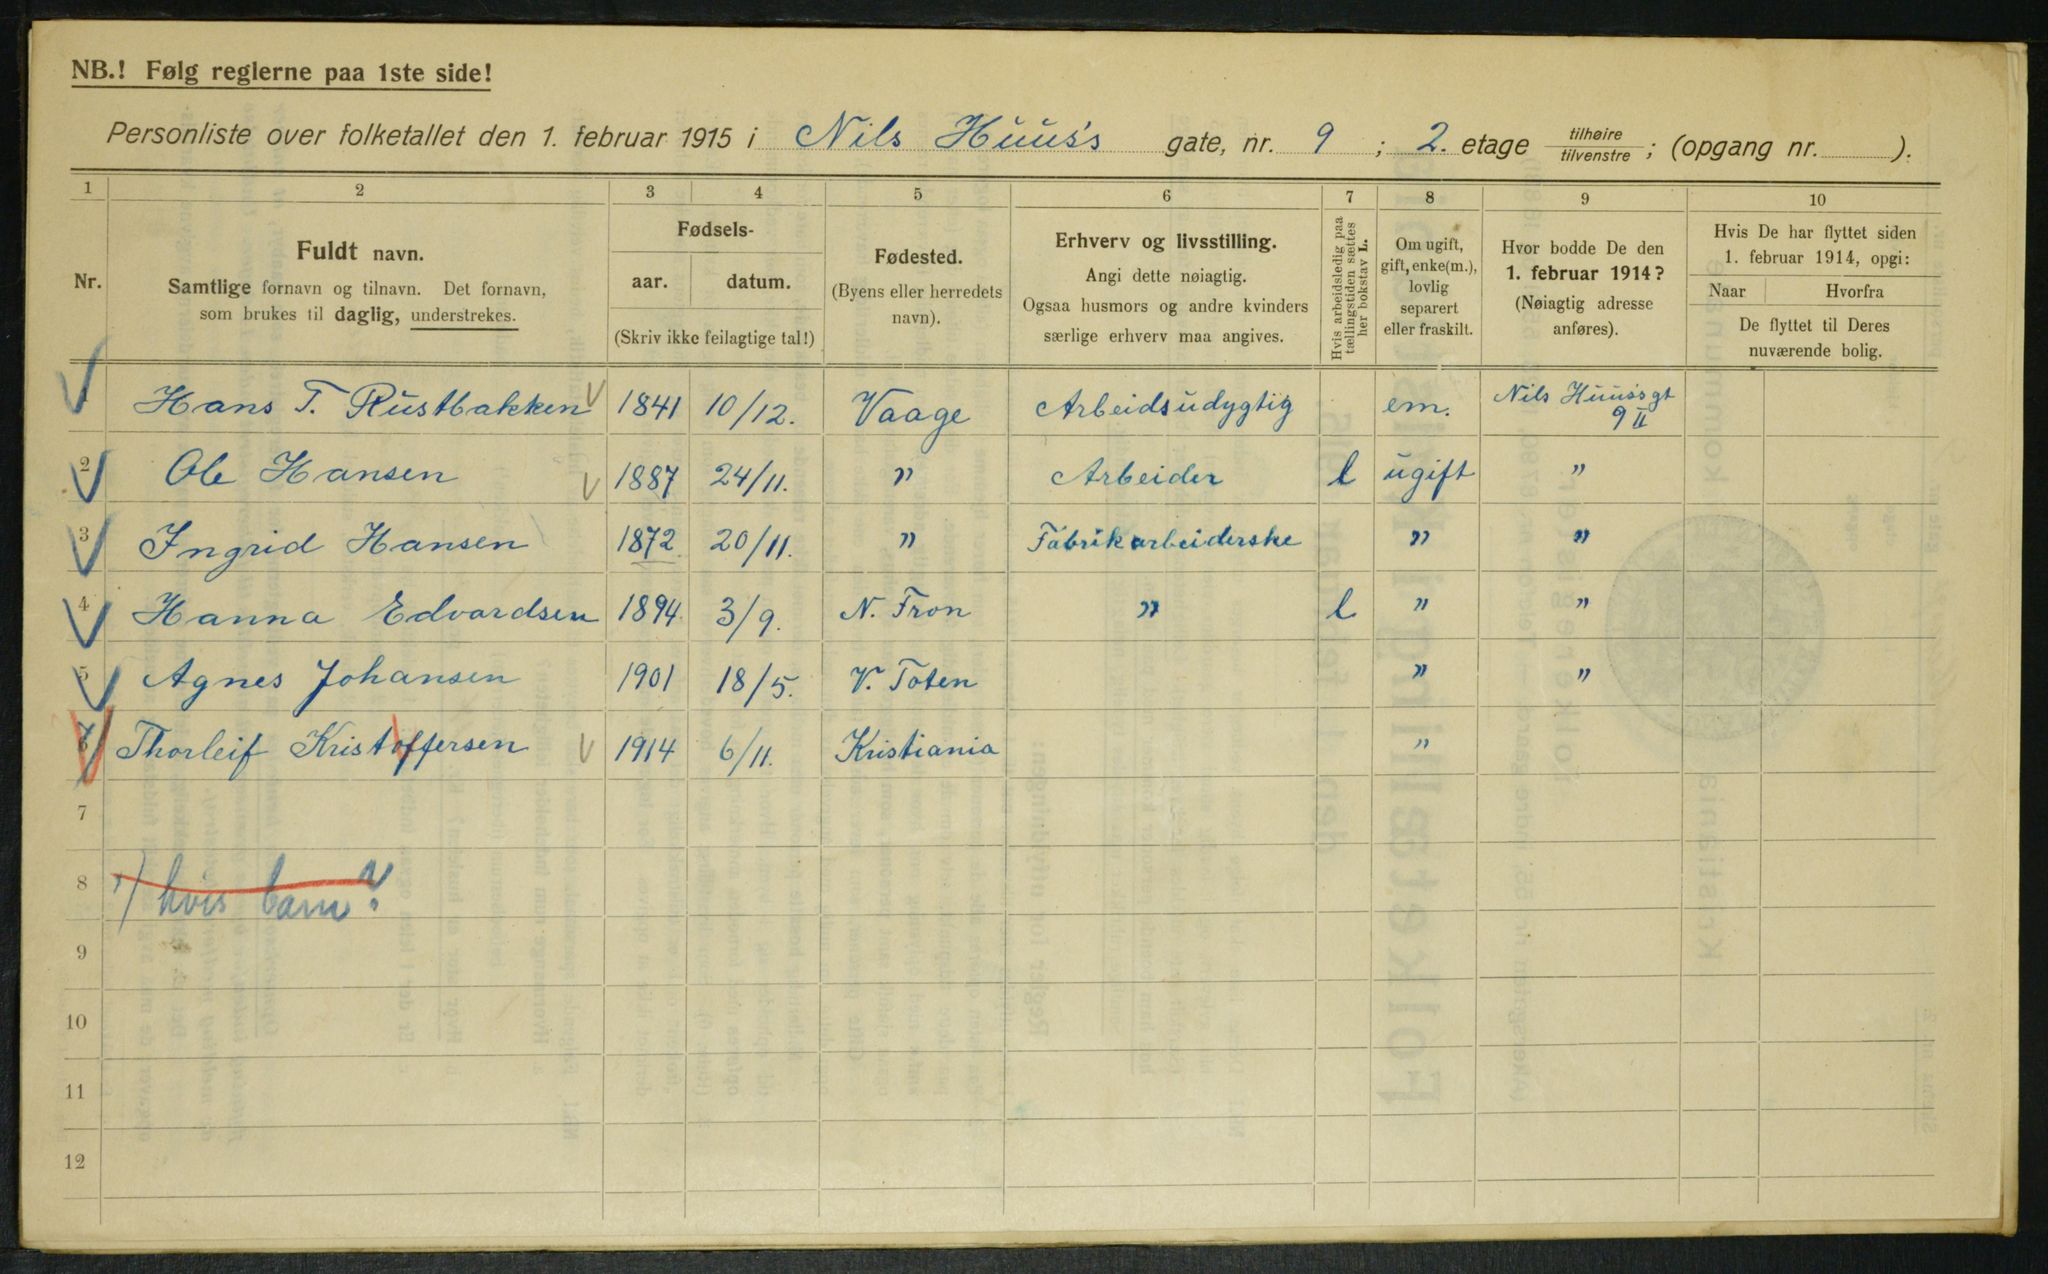 NB.! Følg reglerne paa 1ste side!
Personliste over folketallet den 1. februar 1915 i Nils Huus's gate, nr. 9 ; 2. etage tilhøire / tilvenstre ; (opgang nr. ).
1 2 3 4 5 6 7 8 9 10
Nr.
Fuldt navn.
Samtlige fornavn og tilnavn. Det fornavn,
som brukes til daglig, understrekes.
Fødsels-
aar. datum.
(Skriv ikke feilagtige tal!)
Fødested.
(Byens eller herredets
navn).
Erhverv og livsstilling.
Angi dette nøiagtig.
Ogsaa husmors og andre kvinders
særlige erhverv maa angives.
Hvis arbeidsledig paa
tællingstiden sættes
her bokstav L.
Om ugift,
gift, enke(m.),
lovlig
separert
eller fraskilt.
Hvor bodde De den
1. februar 1914?
(Nøiagtig adresse
anføres).
Hvis De har flyttet siden
1. februar 1914, opgi:
Naar Hvorfra
De flyttet til Deres
nuværende bolig.
1 Hans T. Rustbakken 1841 10/12. Vaage Arbeidsudygtig em. Nils Huus's gt
9 II
2 Ole Hansen 1887 24/11. " Arbeider l ugift "
3 Ingrid Hansen 1872 20/11. " Fabrikarbeiderske " "
4 Hanna Edvardsen 1894 3/9. N. Fron " l " "
5 Agnes Johansen 1901 18/5. V. Toten " "
6 Thorleif Kristoffersen 1914 6/11. Kristiania "
7
8 hvis barn?
9
10
11
12